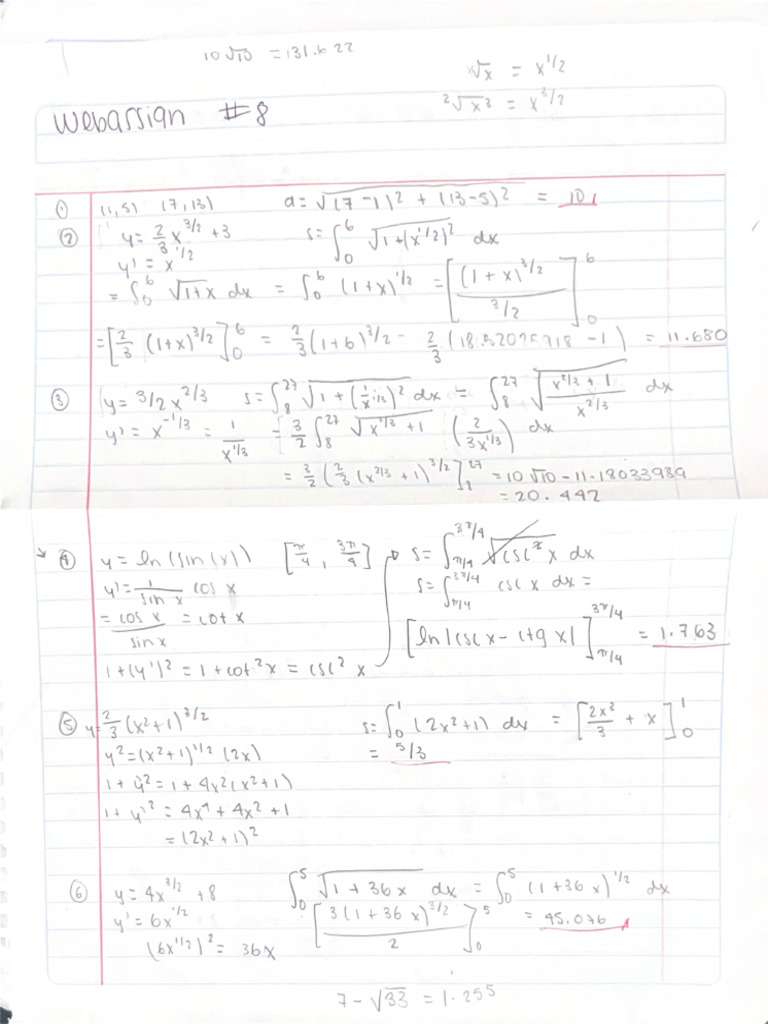 10√10 = 131.622
√x = x^1/2
²√x³ = x^3/2
Webassign #8
① (1,5) (7,13) d = √(7-1)² + (13-5)² = 10
② y = 2/3 x^3/2 + 3 s = ∫₀⁶ √1+(x^1/2)² dx
y' = x^1/2
= ∫₀⁶ √1+x dx = ∫₀⁶ (1+x)^1/2 = [(1+x)^3/2 / 3/2]₀⁶
= [2/3 (1+x)^3/2]₀⁶ = 2/3 (1+6)^3/2 - 2/3 (18.52025918 - 1) = 11.680
③ y = 3/2 x^2/3 s = ∫₈²⁷ √1 + (1/x^1/3)² dx = ∫₈²⁷ √x^2/3 + 1 / x^2/3 dx
y' = x^-1/3 = 1/x^1/3 = 3/2 ∫₈²⁷ √x^2/3 + 1 (2/3x^1/3) dx
= 3/2 (2/3 (x^2/3 + 1)^3/2]²⁷ = 10√10 - 11.18033989
= 20.442
④ y = ln (sin (x)) [π/4, 3π/4] s = ∫π/4^3π/4 √csc² x dx
y' = 1/sin x cos x s = ∫π/4^3π/4 csc x dx =
= cos x / sin x = cot x [ln |csc x - ctg x|]π/4^3π/4 = 1.763
1 + (y')² = 1 + cot² x = csc² x
⑤ y = 2/3 (x²+1)^3/2 s = ∫₀¹ (2x²+1) dx = [2x³/3 + x]₀¹
y² = (x²+1)^1/2 (2x) = 5/3
1 + y'² = 1 + 4x² (x²+1)
1 + y'² = 4x⁴ + 4x² + 1
= (2x²+1)²
⑥ y = 4x^3/2 + 8 ∫₀⁵ √1 + 36x dx = ∫₀⁵ (1+36x)^1/2 dx
y' = 6x^1/2 [3(1+36x)^3/2 / 2]₀⁵ = 45.076
(6x^1/2)² = 36x
7 - √33 = 1.255